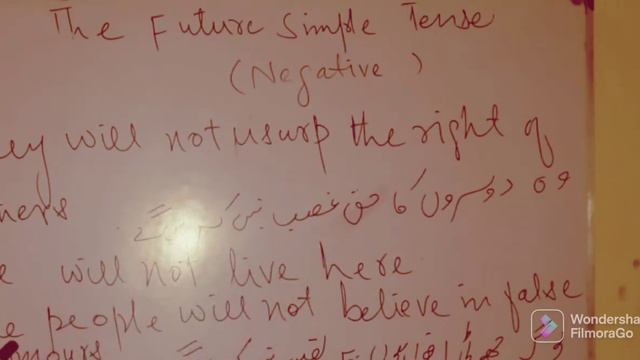 The Future Simple Tense
(Negative)
ey will not usurp the right of
hers
وہ دوسروں کا حق غصب نہیں کریں گے
e will not live here
e people will not believe in false
mours
Wondersha
FilmoraGo